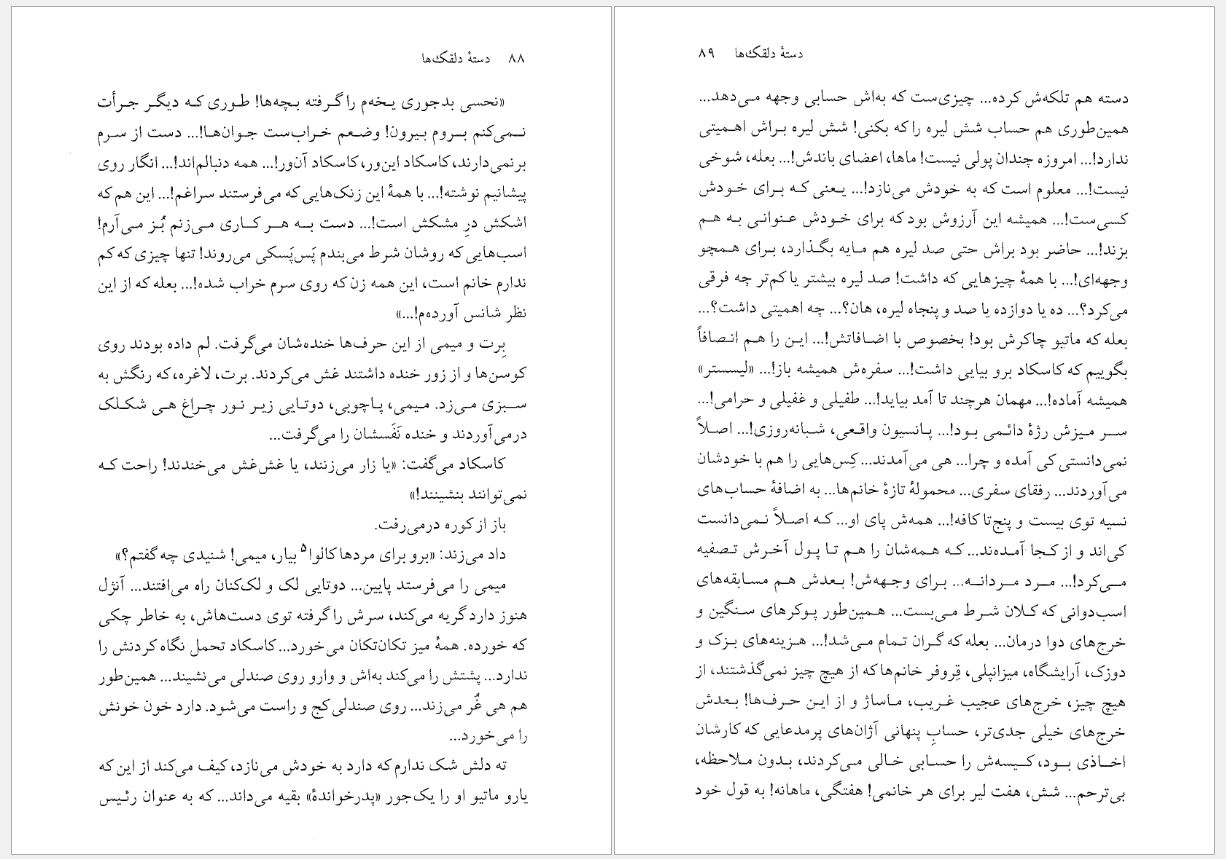 ۸۸ دستهٔ دلقک‌ها
«نحسی بدجوری یخه‌م را گرفته بچه‌ها! طوری که دیگر جرأت
نمی‌کنم بروم بیرون! وضعم خراب‌ست جوان‌ها!... دست از سرم
برنمی‌دارند، کاسکاد این‌ور، کاسکاد آن‌ور!... همه دنبالم‌اند!... انگار روی
پیشانیم نوشته!... با همهٔ این زنک‌هایی که می‌فرستند سراغم!... این هم که
اشکش درِ مشکش است!... دست به هر کاری می‌زنم بُز می‌آرم!
اسب‌هایی که روشان شرط می‌بندم پَس‌پَسکی می‌روند! تنها چیزی که کم
ندارم خانم است، این همه زن که روی سرم خراب شده!... بعله که از این
نظر شانس آورده‌م!...»
بِرت و میمی از این حرف‌ها خنده‌شان می‌گرفت. لم داده بودند روی
کوسن‌ها و از زور خنده داشتند غش می‌کردند. برت، لاغره، که رنگش به
سبزی می‌زد. میمی، پاچوبی، دوتایی زیر نور چراغ هی شکلک
درمی‌آوردند و خنده نَفَسشان را می‌گرفت...
کاسکاد می‌گفت: «یا زار می‌زنند، یا غش‌غش می‌خندند! راحت که
نمی‌توانند بنشینند!»
باز از کوره درمی‌رفت.
داد می‌زند: «برو برای مردها کالوا۵ بیار، میمی! شنیدی چه گفتم؟»
میمی را می‌فرستد پایین... دوتایی لک و لک‌کنان راه می‌افتند... آنژل
هنوز دارد گریه می‌کند، سرش را گرفته توی دست‌هاش، به خاطر چکی
که خورده. همهٔ میز تکان‌تکان می‌خورد... کاسکاد تحمل نگاه کردنش را
ندارد... پشتش را می‌کند به‌اش و وارو روی صندلی می‌نشیند... همین‌طور
هم هی غُر می‌زند... روی صندلی کج و راست می‌شود. دارد خون خونش
را می‌خورد...
ته دلش شک ندارم که دارد به خودش می‌نازد، کیف می‌کند از این که
یارو ماتیو او را یک‌جور «پدرخواندهٔ» بقیه می‌داند... که به عنوان رئیس
دستهٔ دلقک‌ها ۸۹
دسته هم تلکه‌ش کرده... چیزی‌ست که به‌اش حسابی وجهه می‌دهد...
همین‌طوری هم حساب شش لیره را که بکنی! شش لیره براش اهمیتی
ندارد!... امروزه چندان پولی نیست! ماها، اعضای باندش!... بعله، شوخی
نیست!... معلوم است که به خودش می‌نازد!... یعنی که برای خودش
کسی‌ست!... همیشه این آرزوش بود که برای خودش عنوانی به هم
بزند!... حاضر بود براش حتی صد لیره هم مایه بگذارد، برای همچو
وجهه‌ای!... با همهٔ چیزهایی که داشت! صد لیره بیشتر یا کم‌تر چه فرقی
می‌کرد؟... ده یا دوازده یا صد و پنجاه لیره، هان؟... چه اهمیتی داشت؟...
بعله که ماتیو چاکرش بود! بخصوص با اضافاتش!... این را هم انصافاً
بگوییم که کاسکاد برو بیایی داشت!... سفره‌ش همیشه باز!... «لیسستر»
همیشه آماده!... مهمان هرچند تا آمد بیاید!... طفیلی و غفیلی و حرامی!...
سر میزش رژهٔ دائمی بود!... پانسیون واقعی، شبانه‌روزی!... اصلاً
نمی‌دانستی کی آمده و چرا... هی می‌آمدند... کِس‌هایی را هم با خودشان
می‌آوردند... رفقای سفری... محمولهٔ تازهٔ خانم‌ها... به اضافهٔ حساب‌های
نسیه توی بیست و پنج‌تا کافه!... همه‌ش پای او... که اصلاً نمی‌دانست
کی‌اند و از کجا آمده‌ند... که همه‌شان را هم تا پول آخرش تصفیه
می‌کرد!... مرد مردانه... برای وجهه‌ش! بعدش هم مسابقه‌های
اسب‌دوانی که کلان شرط می‌بست... همین‌طور پوکرهای سنگین و
خرج‌های دوا درمان... بعله که گران تمام می‌شد!... هزینه‌های بزک و
دوزک، آرایشگاه، میزانپلی، قِروفر خانم‌ها که از هیچ چیز نمی‌گذشتند، از
هیچ چیز، خرج‌های عجیب غریب، ماساژ و از این حرف‌ها! بعدش
خرج‌های خیلی جدی‌تر، حسابِ پنهانی آژان‌های پرمدعایی که کارشان
اخاذی بود، کیسه‌ش را حسابی خالی می‌کردند، بدون ملاحظه،
بی‌ترحم... شش، هفت لیر برای هر خانمی! هفتگی، ماهانه! به قول خود